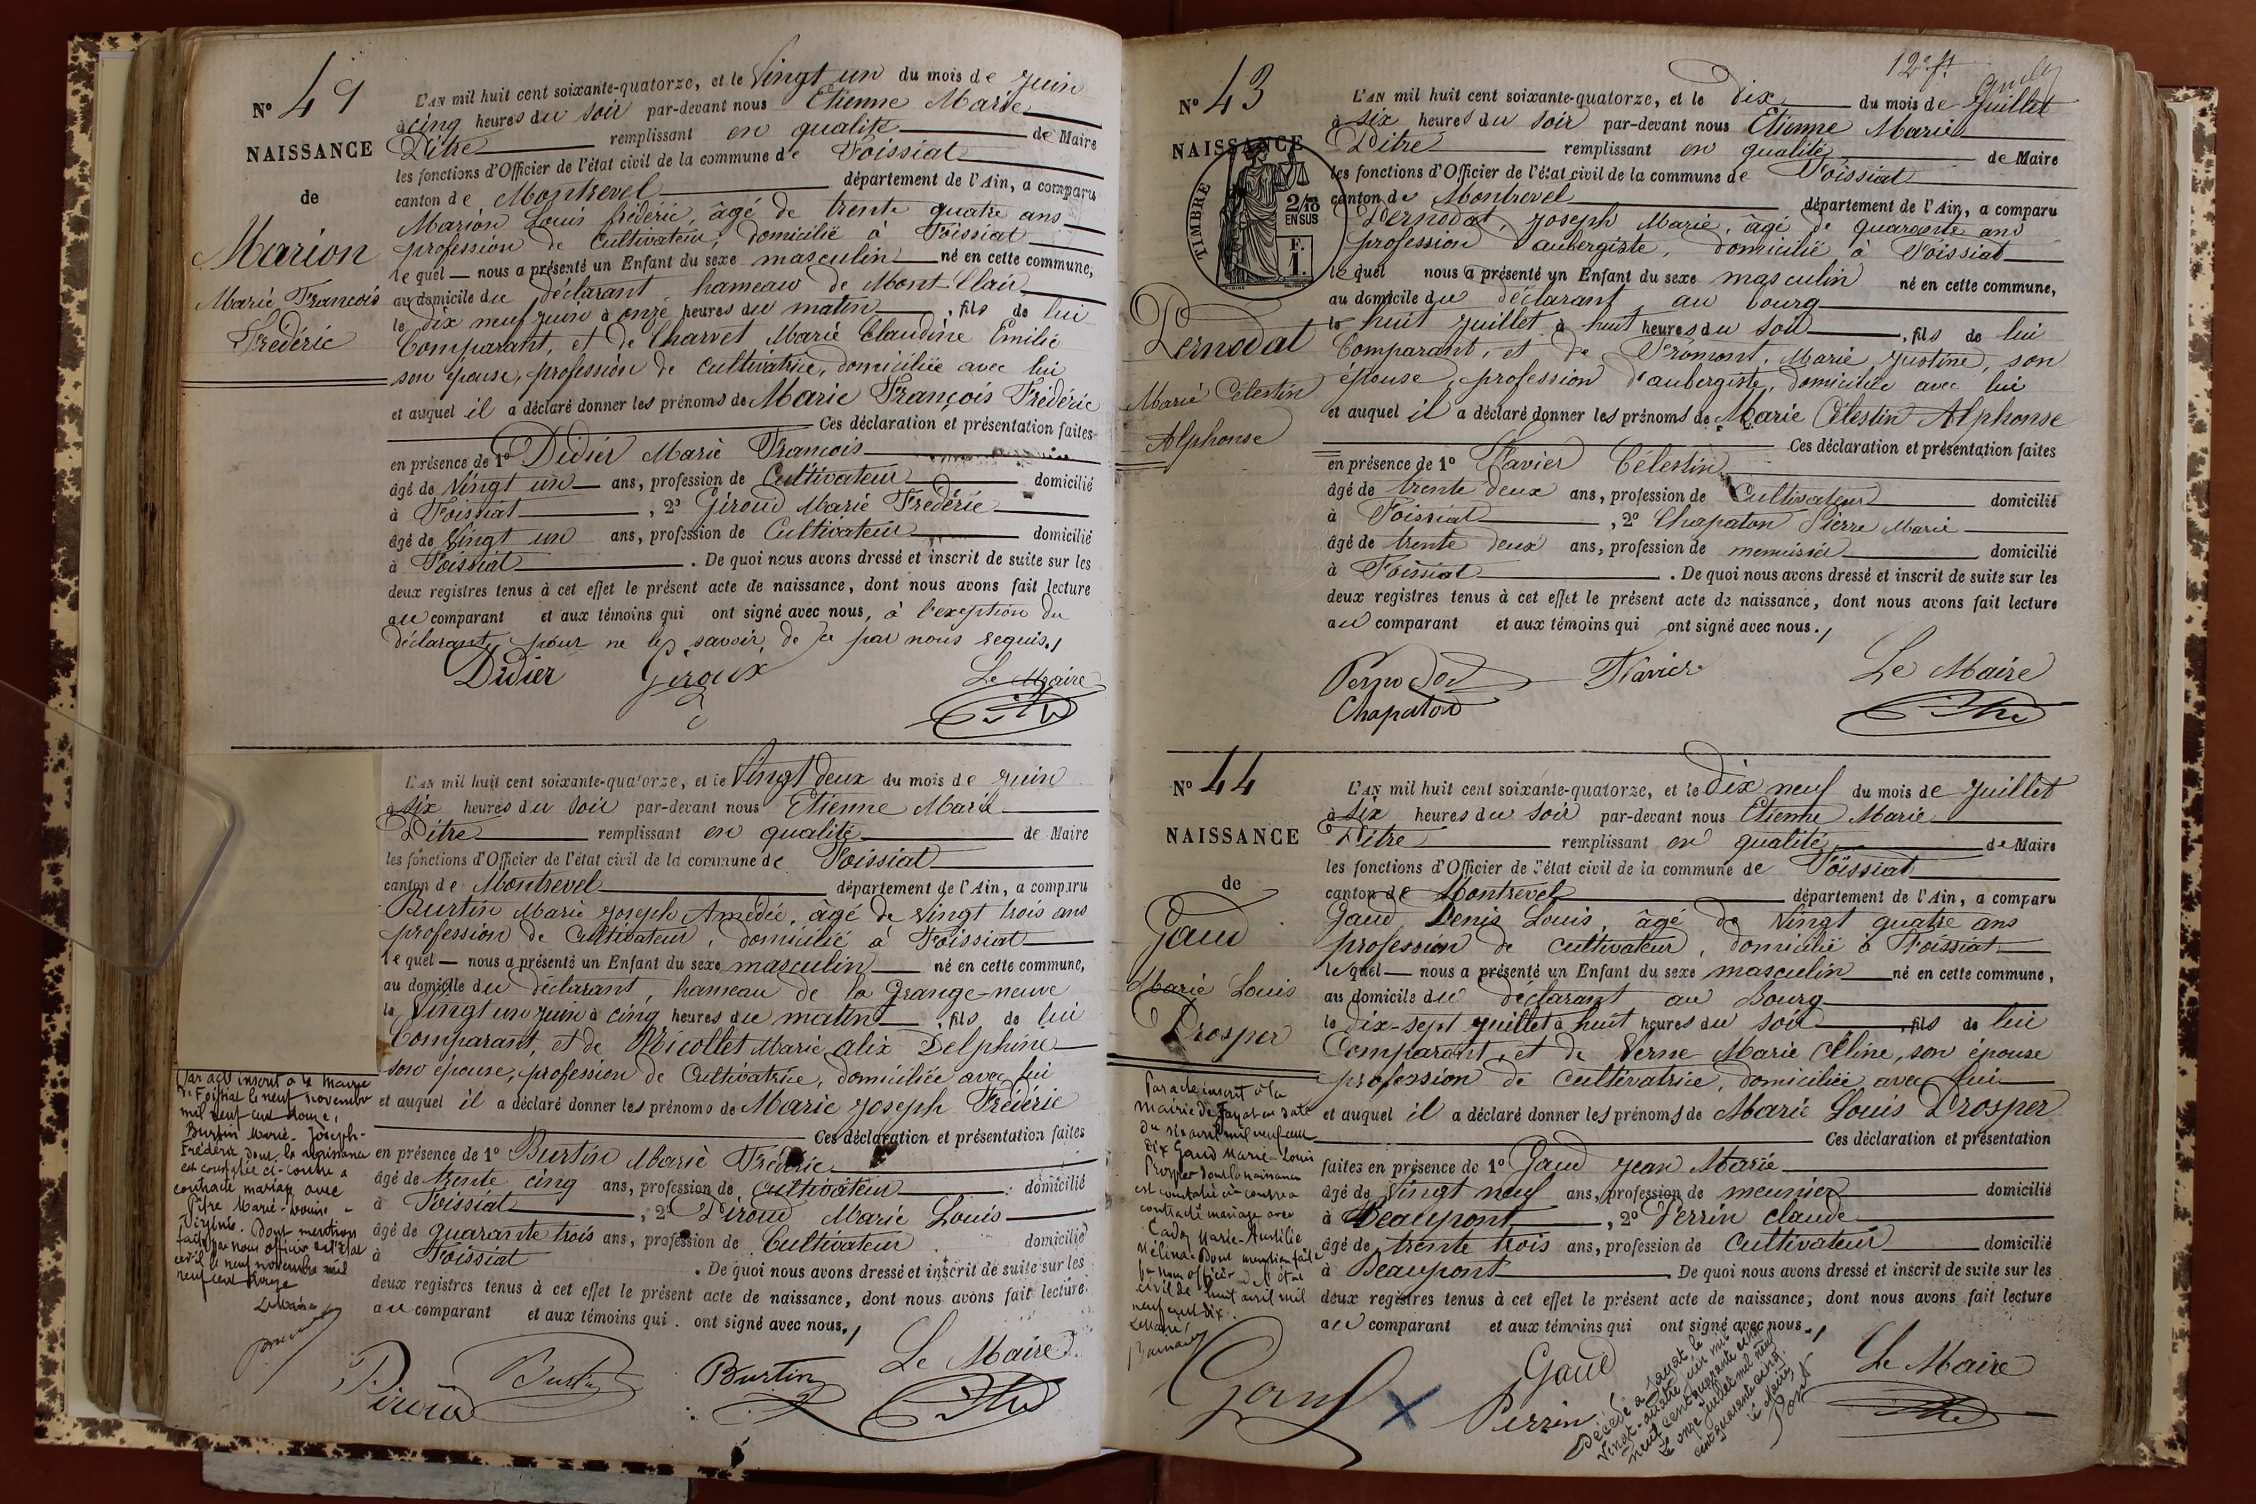 Nº 41
NAISSANCE
de
Marion
Marie François
Frédéric
L'AN mil huit cent soixante-quatorze, et le Vingt un du mois de juin
à cinq heures du soir par-devant nous Etienne Marie
Pitre remplissant en qualité de Maire
les fonctions d'Officier de l'état civil de la commune de Foissiat
canton de Montrevel département de l'Ain, a comparu
Marion Louis frédéric, âgé de trente quatre ans
profession de Cultivateur, domicilié à Foissiat
lequel nous a présenté un Enfant du sexe masculin né en cette commune,
au domicile du déclarant hameau de Mont-Clair
le dix neuf juin à onze heures du matin, fils de lui
Comparant, et de Charvet Marie Claudine Emilie
son épouse, profession de cultivatrice, domiciliée avec lui
et auquel il a déclaré donner les prénoms de Marie François Frédéric
Ces déclaration et présentation faites
en présence de 1º Didier Marie François
âgé de Vingt un ans, profession de Cultivateur domicilié
à Foissiat, 2º Giroud Marie Frédéric
âgé de Vingt un ans, profession de Cultivateur domicilié
à Foissiat. De quoi nous avons dressé et inscrit de suite sur les
deux registres tenus à cet effet le présent acte de naissance, dont nous avons fait lecture
au comparant et aux témoins qui ont signé avec nous, à l'exeption du
déclarant, pour ne le savoir, de ce par nous requis.
Didier Giroux Le Maire
L'AN mil huit cent soixante-quatorze, et le Vingt deux du mois de juin
à six heures du soir par-devant nous Etienne Marie
Pitre remplissant en qualité de Maire
les fonctions d'Officier de l'état civil de la commune de Foissiat
canton de Montrevel département de l'Ain, a comparu
Burtin Marie Joseph Amédée, âgé de vingt trois ans
profession de Cultivateur, domicilié à Foissiat
lequel nous a présenté un Enfant du sexe masculin né en cette commune,
au domicile du déclarant, hameau de la Grange-neuve
le Vingt un juin à cinq heures du matin, fils de lui
Comparant, et de Nicollet Marie alix Delphine
son épouse, profession de Cultivatrice, domiciliée avec lui
et auquel il a déclaré donner les prénoms de Marie Joseph Frédéric
Ces déclaration et présentation faites
en présence de 1º Burtin Marie Frédéric
âgé de trente cinq ans, profession de cultivateur domicilié
à Foissiat, 2º Piroud Marie Louis
âgé de quarante trois ans, profession de Cultivateur domicilié
à Foissiat. De quoi nous avons dressé et inscrit de suite sur les
deux registres tenus à cet effet le présent acte de naissance, dont nous avons fait lecture
au comparant et aux témoins qui ont signé avec nous.
Piroud Burtin Burtin Le Maire
Par acte inscrit à la Mairie
de Foissiat le neuf novembre
mil neuf cent douze,
Burtin Marie-Joseph-
Frédéric dont la naissance
est constatée ci-contre a
contracté mariage avec
Pitre Marie-Louise-
Virginie. Dont mention
faite par nous officier de l'état
civil le neuf novembre mil
neuf cent douze
Le Maire
12e ft
Nº 43
NAISSANCE
TIMBRE
2/10
EN SUS
F.
1.
Pernodat
Marie Célestin
Alphonse
L'AN mil huit cent soixante-quatorze, et le Dix du mois de juillet
à six heures du soir par-devant nous Etienne Marie
Pitre remplissant en qualité de Maire
les fonctions d'Officier de l'état civil de la commune de Foissiat
canton de Montrevel département de l'Ain, a comparu
Pernodat, Joseph Marie, âgé de quarante ans
profession d'aubergiste, domicilié à Foissiat
lequel nous a présenté un Enfant du sexe masculin né en cette commune,
au domicile du déclarant, au bourg
le huit juillet à huit heures du soir, fils de lui
Comparant, et de Frémont, Marie justine, son
épouse, profession d'aubergiste, domiciliée avec lui
et auquel il a déclaré donner les prénoms de Marie Célestin Alphonse
Ces déclaration et présentation faites
en présence de 1º Favier Célestin
âgé de trente deux ans, profession de Cultivateur domicilié
à Foissiat, 2º Chapaton Pierre Marie
âgé de trente deux ans, profession de menuisier domicilié
à Foissiat. De quoi nous avons dressé et inscrit de suite sur les
deux registres tenus à cet effet le présent acte de naissance, dont nous avons fait lecture
au comparant et aux témoins qui ont signé avec nous.
Pernodat Favier Le Maire
Chapaton
Nº 44
NAISSANCE
de
Gaud
Marie Louis
Prosper
L'AN mil huit cent soixante-quatorze, et le Dix neuf du mois de juillet
à six heures du soir par-devant nous Etienne Marie
Pitre remplissant en qualité de Maire
les fonctions d'Officier de l'état civil de la commune de Foissiat
canton de Montrevel département de l'Ain, a comparu
Gaud Denis Louis, âgé de Vingt quatre ans
profession de cultivateur, domicilié à Foissiat
lequel nous a présenté un Enfant du sexe masculin né en cette commune,
au domicile du déclarant au Bourg
le dix-sept juillet à huit heures du soir, fils de lui
Comparant, et de Verne Marie Céline, son épouse
profession de cultivatrice, domiciliée avec lui
et auquel il a déclaré donner les prénoms de Marie Louis Prosper
Ces déclaration et présentation
faites en présence de 1º Gaud Jean Marie
âgé de Vingt neuf ans, profession de meunier domicilié
à Beaupont, 2º Perrin claude
âgé de trente trois ans, profession de Cultivateur domicilié
à Beaupont. De quoi nous avons dressé et inscrit de suite sur les
deux registres tenus à cet effet le présent acte de naissance, dont nous avons fait lecture
au comparant et aux témoins qui ont signé avec nous.
Gaud Gaud Le Maire
Perrin
Par acte inscrit à la
Mairie de Jayat en date
du six avril mil neuf cent
dix Gaud Marie-Louis
Prosper dont la naissance
est constatée ci-contre a
contracté mariage avec
Marie-Aurélie
Mélina. Dont mention faite
par nous officier de l'état
civil le huit avril mil
neuf cent dix.
Le Maire
Décédé à Jayat le
vingt-quatre juin mil
neuf cent quarante cinq
Le onze juillet mil neuf
cent quarante cinq.
le Maire,
Pont